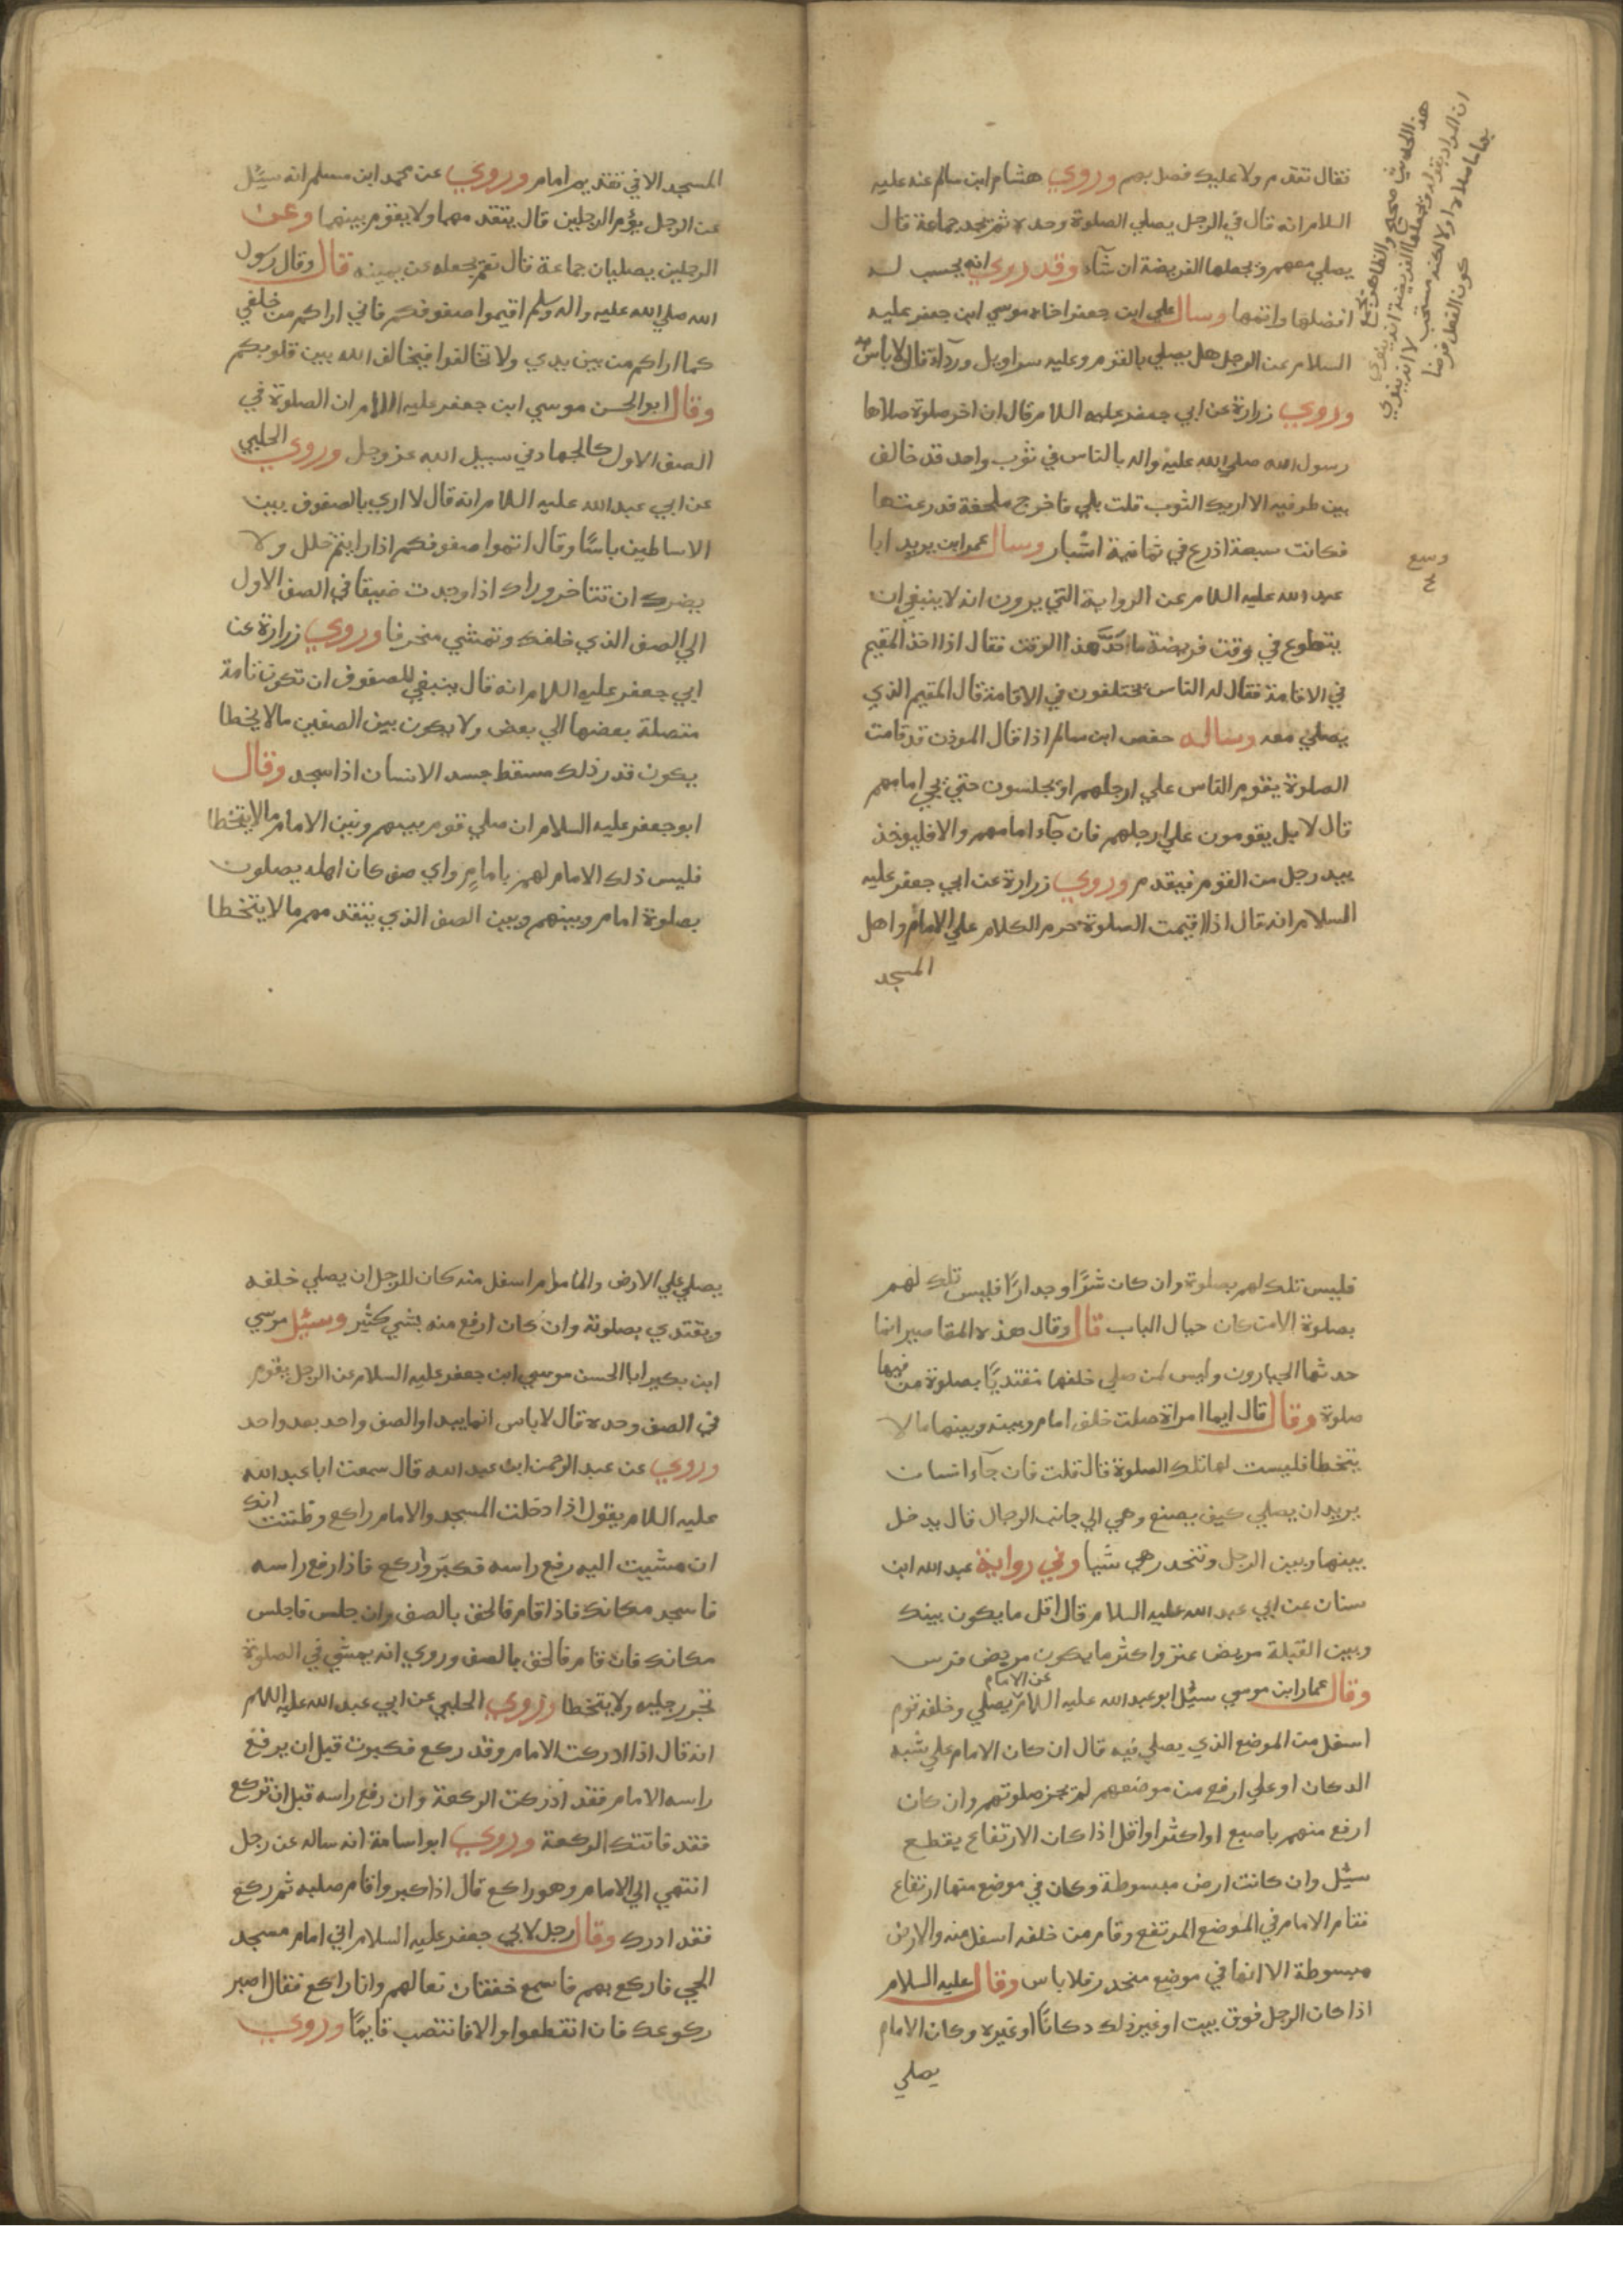 فقال تقدم ولا عليك فصل بهم وروي هشام ابن سالم عنه عليه
السلام انه قال في الرجل يصلي الصلوة وحده ثم يجد جماعة قال
يصلي معهم ويجعلها الفريضة ان شآء وقد روي انه يحسب له
افضلها واتمها وسال علي ابن جعفر اخاه موسي ابن جعفر عليه
السلام عن الرجل هل يصلي بالقوم وعليه سراويل وردآء قال لا باس به
وروي زرارة عن ابي جعفر عليه السلام قال ان اخر صلوة صلاها
رسول الله صلي الله عليه واله بالناس في ثوب واحد قد خالف
بين طرفيه الا اريك الثوب قلت بلي فاخرج ملحفة فذرعتها
فكانت سبعة اذرع في ثمانية اشبار وسال عمر ابن يزيد ابا
عبد الله عليه السلام عن الرواية التي يروون انه لا ينبغي ان
يتطوع في وقت فريضة ما حَدُّ هذا الوقت فقال اذا اخذ المقيم
في الاقامة فقال له الناس يختلفون في الاقامة قال المقيم الذي
يصلي معه وساله حفص ابن سالم اذا قال الموذن قد قامت
الصلوة يقوم الناس علي ارجلهم او يجلسون حتي يجي امامهم
قال لا بل يقومون علي ارجلهم فان جآء امامهم والا فليوخذ
بيد رجل من القوم فيقدم وروي زرارة عن ابي جعفر عليه
السلام انه قال اذا اقيمت الصلوة حرم الكلام علي الامام واهل
المسجد
هذا الحديث صحيح والظاهر
ان المراد بقوله ويجعلها الفريضة انه ينوي
بها ما صلاه اولا لكنه مستحب لا انه ينوي
كون الفعل فرضا
وسع
٤
المسجد الا في تقديم امام وروي عن محمد ابن مسلم انه سيُل
عن الرجل يؤم الرجلين قال يتقدمهما ولا يقوم بينهما وعن
الرجلين يصليان جماعة قال نعم يجعله عن يمينه قال وقال رسول
الله صلي الله عليه واله وسلم اقيموا صفوفكم فاني اراكم من خلفي
كما اراكم من بين يدي ولا تخالفوا فيخالف الله بين قلوبكم
وقال ابو الحسن موسي ابن جعفر عليه السلام ان الصلوة في
الصف الاول كالجهاد في سبيل الله عز وجل وروي الحلبي
عن ابي عبد الله عليه السلام انه قال لا اري بالصفوف بين
الاساطين باسًا وقال اتموا صفوفكم اذا رايتم خلل ولا
يضرك ان تتاخر وراك اذا وجدت ضيقا في الصف الاول
الي الصف الذي خلفك وتمشي منحرفا وروي زرارة عن
ابي جعفر عليه السلام انه قال ينبغي للصفوف ان تكون تامة
متصلة بعضها الي بعض ولا يكون بين الصفين مالا يخطا
يكون قدر ذلك مسقط جسد الانسان اذا سجد وقال
ابو جعفر عليه السلام ان صلي قوم بينهم وبين الامام مالا يتخطا
فليس ذلك الامام لهم بامامٍ واي صف كان اهله يصلون
بصلوة امام وبينهم وبين الصف الذي يتقدمهم مالا يتخطا
فليس تلك لهم بصلوة وان كان سُترًا وجدارًا فليس تلك لهم
بصلوة الا من كان حيال الباب قال وقال هذه المقاصير انما
حدثها الجبارون وليس لمن صلي خلفها مقتديًا بصلوة من فيها
صلوة وقال قال ايما امراة صلت خلف امام وبينه وبينها مالا
يتخطا فليست لها تلك الصلوة قال قلت فان جآء انسان
يريد ان يصلي كيف يصنع وهي الي جانب الرجال قال يدخل
بينها وبين الرجل وتنحدر هي شيا وفي رواية عبد الله ابن
سنان عن ابي عبد الله عليه السلام قال اقل ما يكون بينك
وبين القبلة مربض عنز واكثر ما يكون مربض فرس
وقال عمار ابن موسي سيُل ابو عبد الله عليه السلام عن الامام يصلي وخلفه قوم
اسفل من الموضع الذي يصلي فيه قال ان كان الامام علي شبه
الدكان او علي ارفع من موضعهم لم يجز صلوتهم وان كان
ارفع منهم باصبع او اكثر او اقل اذا كان الارتفاع يقطع
سيُل وان كانت ارض مبسوطة وكان في موضع منها ارتفاع
فقام الامام في الموضع المرتفع وقام من خلفه اسفل منه والارض
مبسوطة الا انها في موضع منحدر فلا باس وقال عليه السلام
اذا كان الرجل فوق بيت او غير ذلك دكانًا او غيره وكان الامام
يصلي
يصلي علي الارض والامام اسفل منه كان للرجل ان يصلي خلفه
ويقتدي بصلوته وان كان ارفع منه بشي كثير وسيُل موسي
ابن بكير ابا الحسن موسي ابن جعفر عليه السلام عن الرجل يقوم
في الصف وحده قال لا باس انما يبداو الصف واحد بعد واحد
وروي عن عبد الرحمن ابن عبد الله قال سمعت ابا عبد الله
عليه السلام يقول اذا دخلت المسجد والامام راكع وظننت انك
ان مشيت اليه رفع راسه فكبر واركع فاذا رفع راسه
فاسجد مكانك فاذا قام فالحق بالصف وان جلس فاجلس
مكانك فان قام فالحق بالصف وروي انه يمشي في الصلوة
يجر رجليه ولا يتخطا وروي الحلبي عن ابي عبد الله عليه السلام
انه قال اذا ادركت الامام وقد ركع فكبرت قبل ان يرفع
راسه الامام فقد ادركت الركعة وان رفع راسه قبل ان تركع
فقد فاتتك الركعة وروي ابو اسامة انه ساله عن رجل
انتهي الي الامام وهو راكع قال اذا كبر واقام صلبه ثم ركع
فقد ادرك وقال رجل لابي جعفر عليه السلام اني امام مسجد
الحي فاركع بهم فاسمع خفقان نعالهم وانا راكع فقال اصبر
ركوعك فان انقطعوا والا فانتصب قايمًا وروي